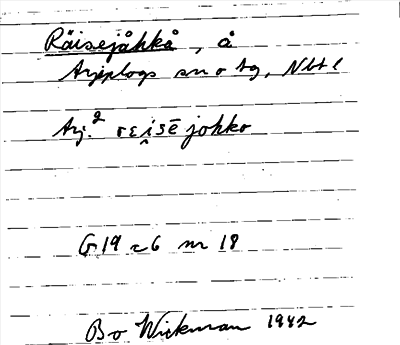 Räisejåhkå, å
Arjeplogs sn o tg, Nbt l
Arj.² rεi̯sē johko
G 19 c 6 nr 18
Bo Wickman 1942